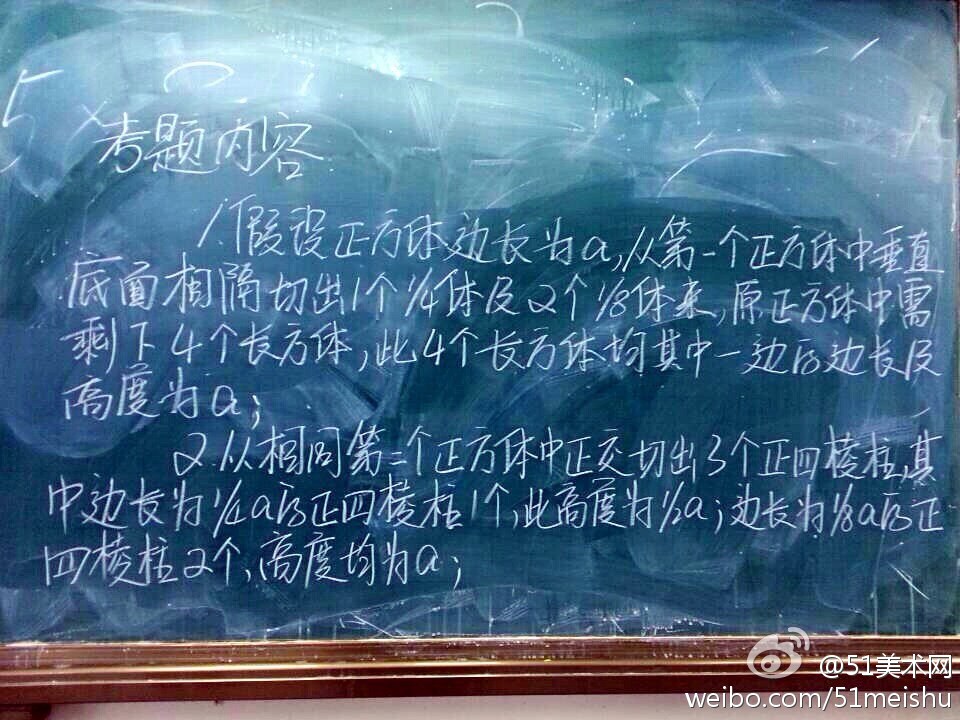 考题内容
1.假设正方体边长为a,从第一个正方体中垂直
底面相隔切出1个1/4体及2个1/8体来,原正方体中需
剩下4个长方体,此4个长方体均其中一边的边长及
高度为a;
2.从相同第二个正方体中正交切出3个正四棱柱,其
中边长为1/4a的正四棱柱1个,此高度为1/2a;边长为1/8a的正
四棱柱2个,高度均为a;
@51美术网
weibo.com/51meishu